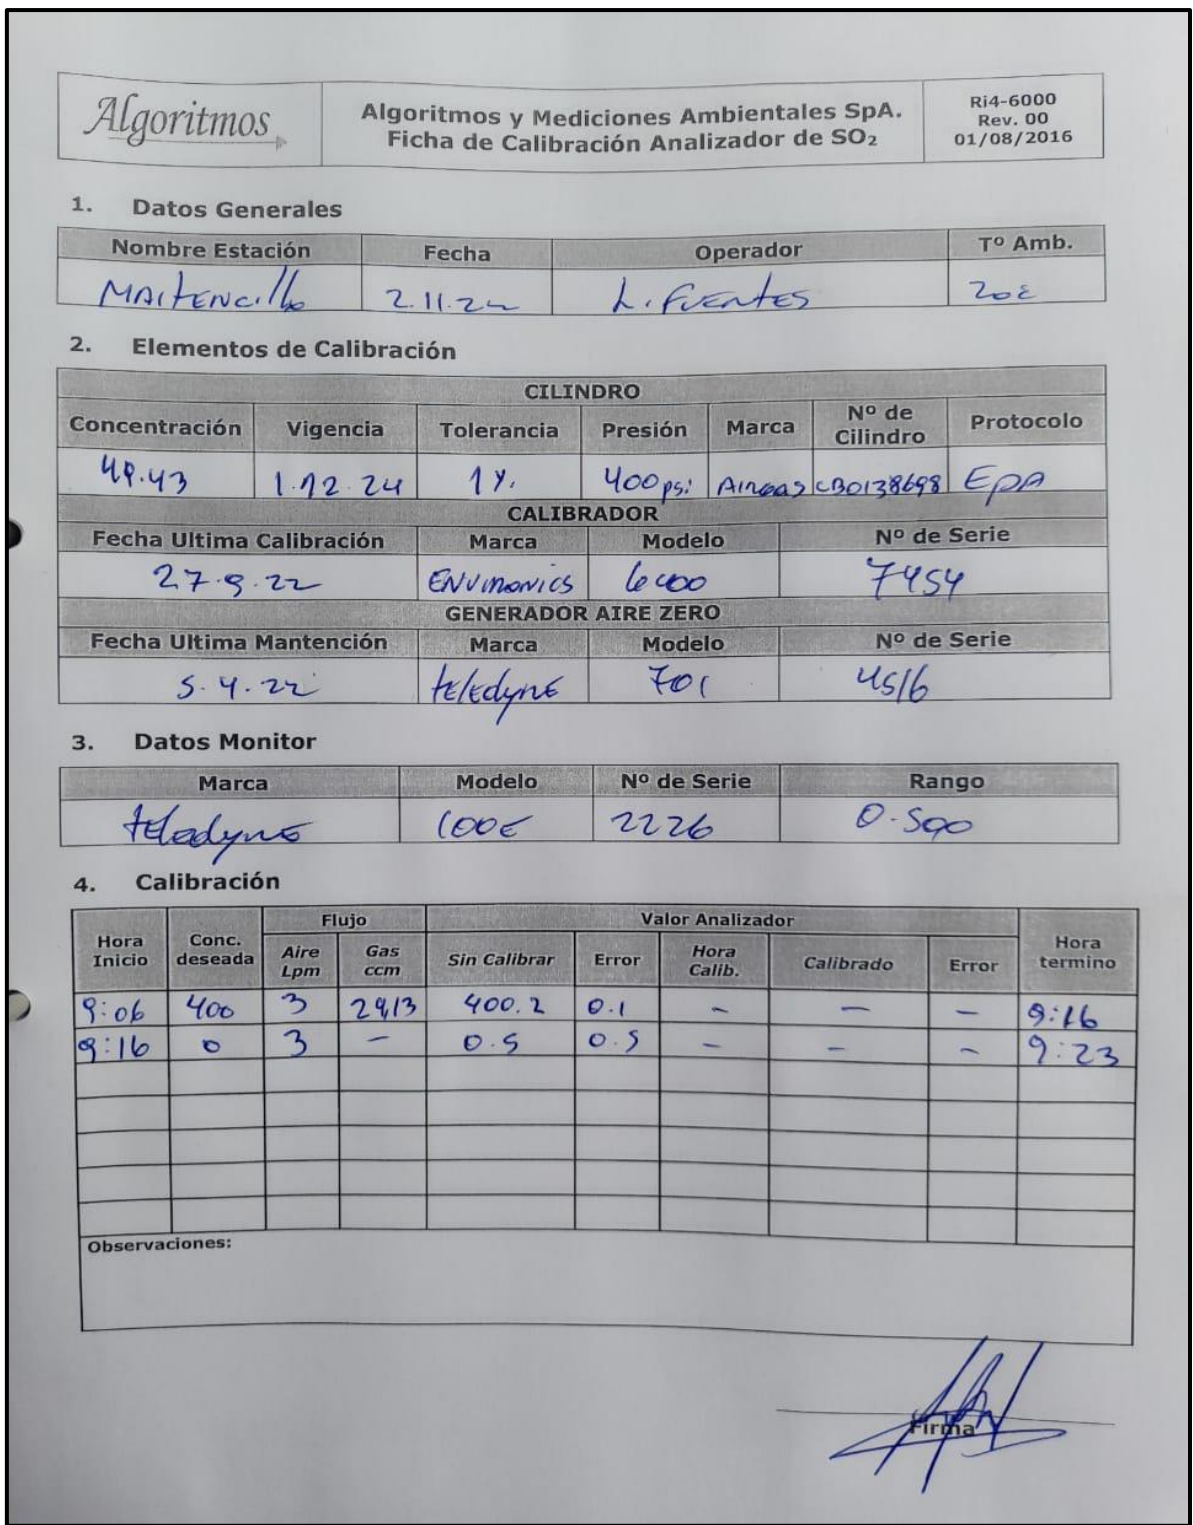 Algoritmos
Algoritmos y Mediciones Ambientales SpA.
Ficha de Calibración Analizador de SO₂
Ri4-6000
Rev. 00
01/08/2016
1. Datos Generales
Nombre Estación Fecha Operador Tº Amb.
MAITENCillo 2.11.22 L. FUENTES
2. Elementos de Calibración
CILINDRO
Concentración Vigencia Tolerancia Presión Marca Nº de Cilindro Protocolo
49.43 1.12.24 1%. 400 psi AIRGAS CB0138698 EPA
CALIBRADOR
Fecha Ultima Calibración Marca Modelo Nº de Serie
27.9.22 ENVIRONICS 6000 7454
GENERADOR AIRE ZERO
Fecha Ultima Mantención Marca Modelo Nº de Serie
5.4.22 teledyne 701 4516
3. Datos Monitor
Marca Modelo Nº de Serie Rango
teledyne 100E 2226 0-500
4. Calibración
Flujo Valor Analizador
Hora Inicio Conc. deseada Aire Lpm Gas ccm Sin Calibrar Error Hora Calib. Calibrado Error Hora termino
9:06 400 3 24,13 400.2 0.1 - - - 9:16
9:16 0 3 - 0.5 0.5 - - - 9:23
Observaciones:
Firma